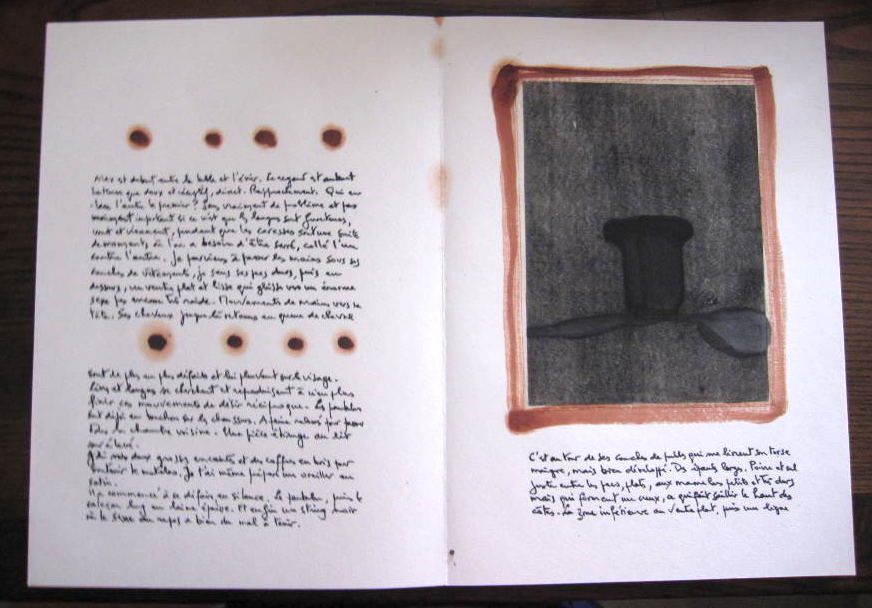 Alex est debout entre la table et l'évier. Le regard est autant
que doux et réceptif, direct. Rapprochement. Qui em-
l'autre le premier ? Sans vraiment de problème et pas
vraiment important si ce n'est que les langues sont furieuses,
vont et viennent, pendant que les caresses sont une suite
de moments, où l'on a besoin d'être serré, collé l'un
contre l'autre. Je parviens à passer les mains sous ses
couches de vêtements, je sens ses pecs durs, puis en
dessous, un ventre plat et lisse qui glisse vers un énorme
sexe pas encore très raide. Mouvements de mains vers sa
tête. Ses cheveux jusque là retenus en queue de cheval
sont de plus en plus défaits et lui pleuvent sur le visage.
Lèvres et langues se cherchent et
ces mouvements de désir réciproque. Les pantalons
sont déjà en bouchon sur les chaussures. A peine
dans la chambre voisine. Une pièce étrange au lit

J'ai mis deux grosses et des coffres en bois pour
soutenir le matelas. Je t'ai même préparé un oreiller en
satin.
Il a commencé à se défaire en silence. Le pantalon, puis le
caleçon long en laine épaisse. Et enfin un string noir
où le sexe au repos a bien du mal à tenir.
C'est au tour de ses couches de pulls qui me livrent un torse
maigre, mais bien développé. Des épaules larges. Poitrine
juste entre les pecs, plats, aux mamelons petits et très durs
mais qui forment un creux, ce qui fait saillir le haut des
côtes. La zone inférieure au ventre plat, puis une ligne